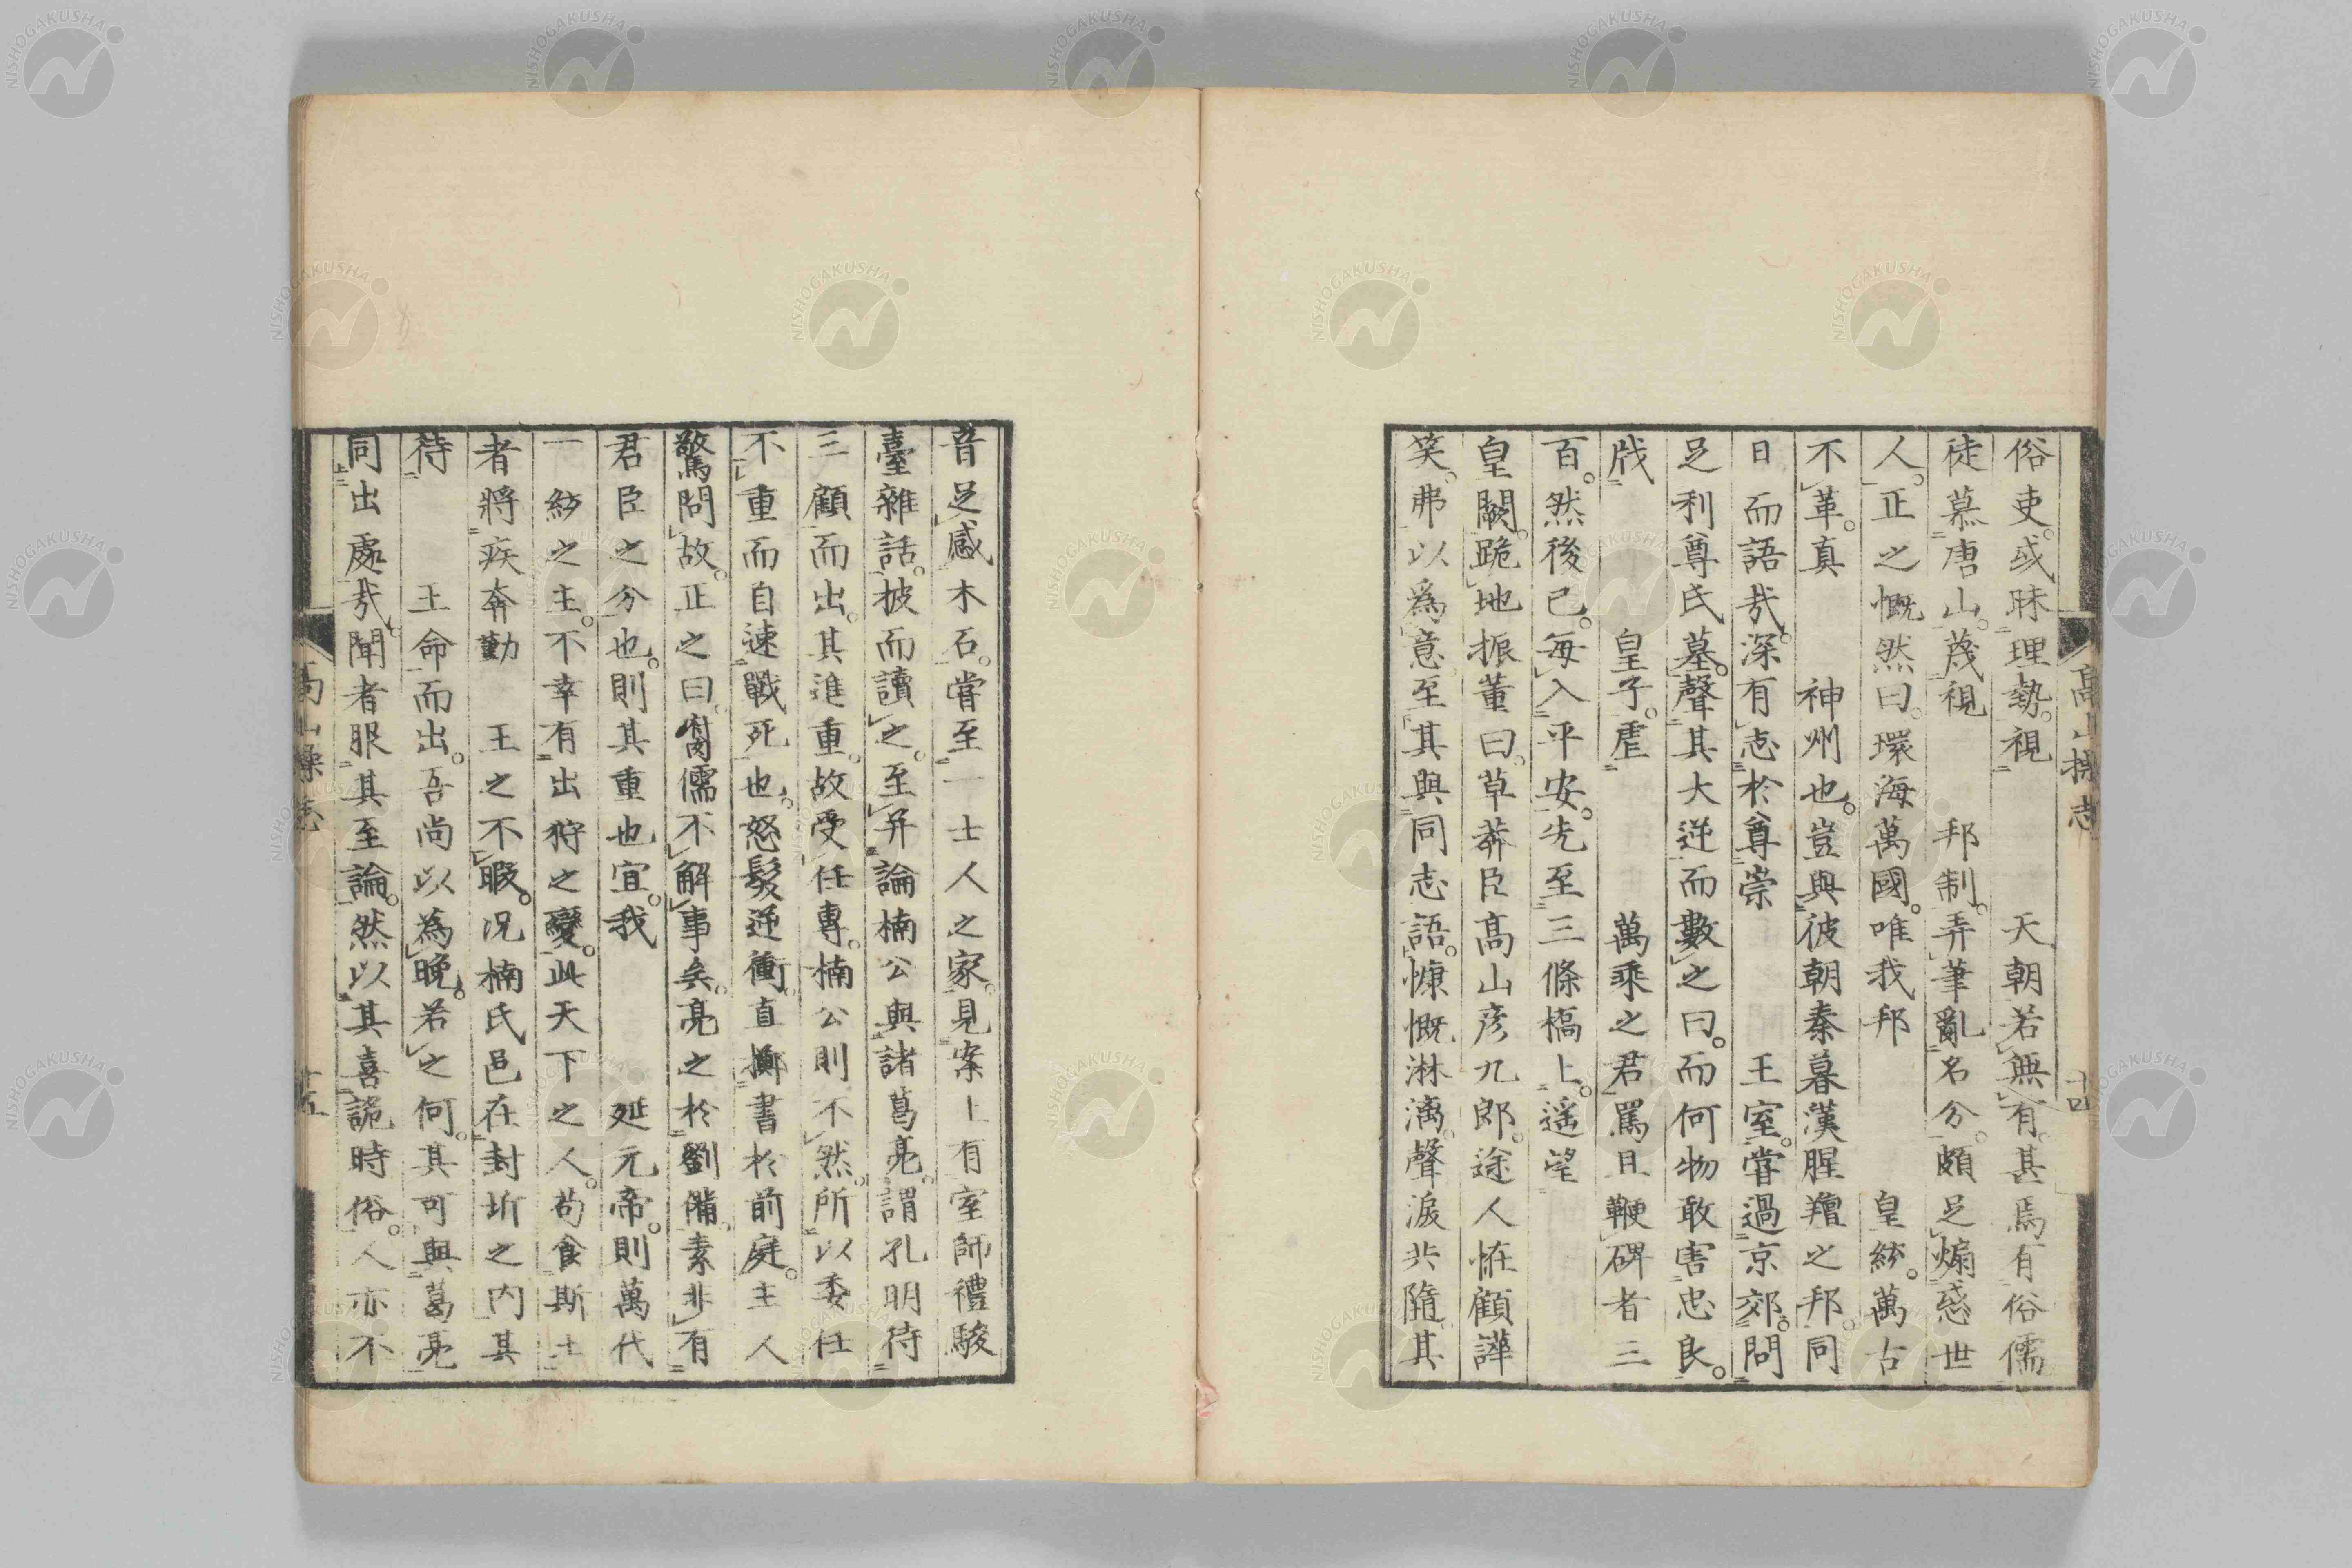 高山操志
十四
俗吏。或昧理勢。視　天朝若無有。甚焉有俗儒
徒慕唐山。蔑視　邦制。弄筆亂名分。頗足煽惑世
人。正之慨然曰。環海萬國。唯我邦　皇統。萬古
不革。真　神州也。豈與彼朝秦暮漢腥羶之邦。同
日而語哉。深有志於尊崇　王室。嘗過京郊。問
足利尊氏墓。聲其大逆而數之曰。而何物敢害忠良。
戕　皇子。虐　萬乘之君。罵且鞭碑者三
百。然後已。每入平安。先至三條橋上。遥望
皇闕。跪地振董曰。草莽臣高山彦九郎。途人恠顧譁
笑。弗以為意至其與同志語。慷慨淋漓。聲淚共隨。其
音足感木石。嘗至一士人之家。見案上有室師禮駿
臺雜話。披而讀之。至并論楠公與諸葛亮。謂孔明待
三顧而出。其進重。故受任專。楠公則不然。所以委任
不重而自速戰死也。怒髮逆衝。直擲書於前庭。主人
驚問故。正之曰。腐儒不解事矣。亮之於劉備。素非有
君臣之分也。則其重也宜。我　延元帝。則萬代
一統之主。不幸有出狩之變。此天下之人。苟食斯土
者將疾奔勤　王之不暇。況楠氏邑在封圻之内其
待　王命而出。吾尚以為晚。若之何。其可與葛亮
同出處哉。聞者服其至論。然以其喜詭時俗。人亦不
高山操志
十五
NISHOGAKUSHA